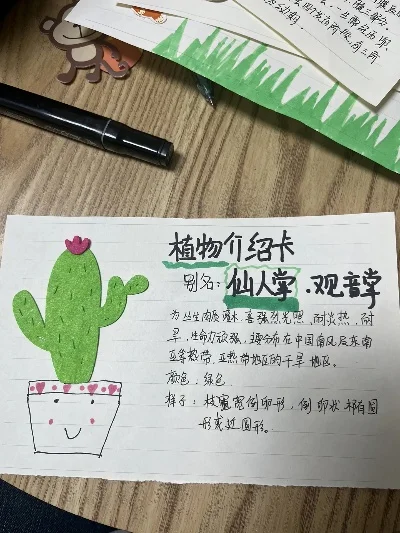 植物介绍卡
别名：仙人掌．观音掌
为丛生肉质灌木，喜强烈光照，耐炎热，耐
旱，生命力顽强，分布在中国南风及东南
亚等热带、亚热带地区的干旱地区。
颜色：绿色
样子：宽倒卵形，倒卵状椭圆
形或近圆形。